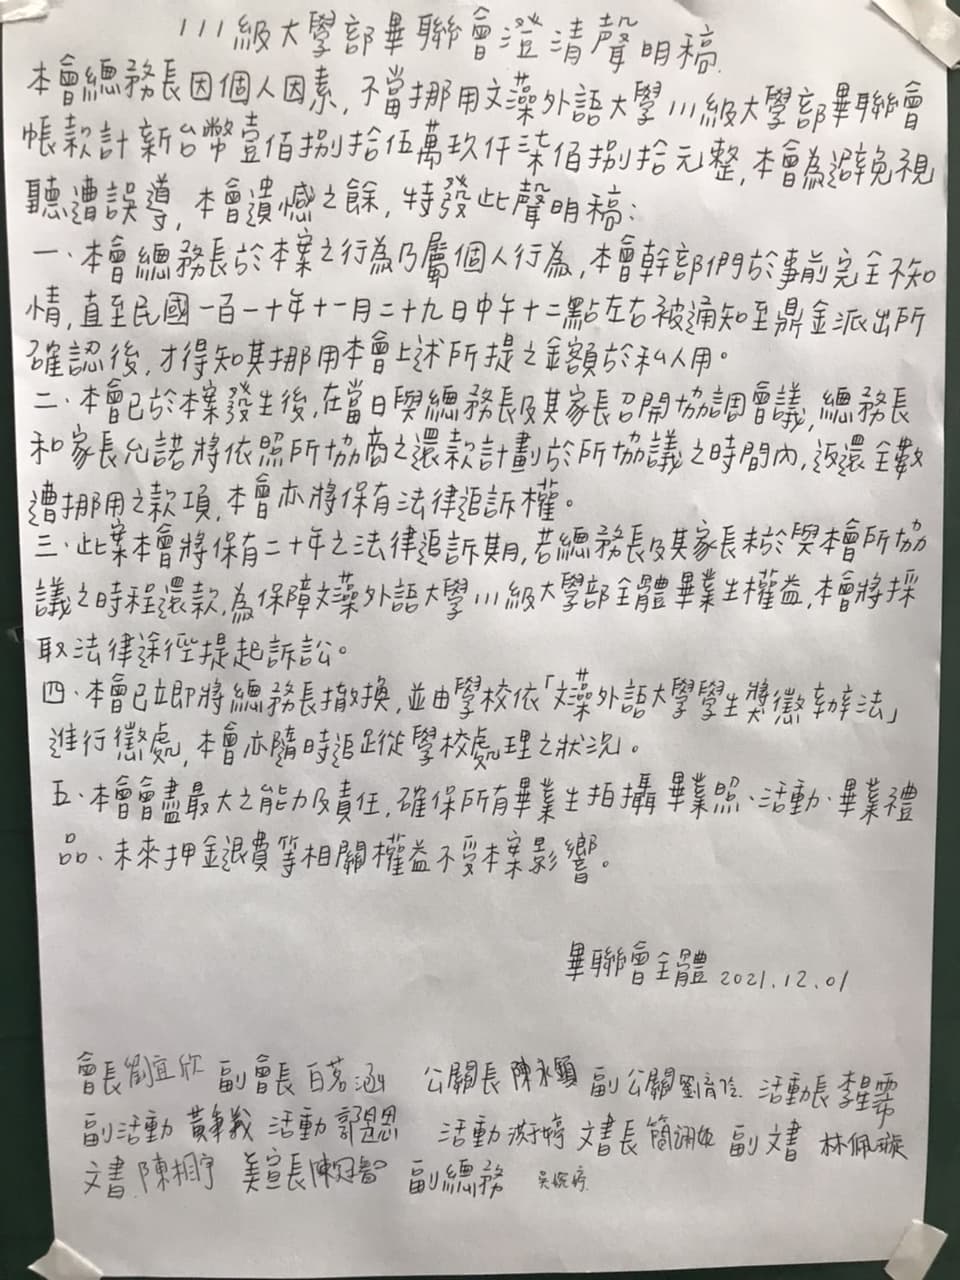 111級大學部畢聯會澄清聲明稿
本會總務長因個人因素，不當挪用文藻外語大學111級大學部畢聯會
帳款計新台幣壹佰捌拾伍萬玖仟柒佰捌拾元整，本會為避免視
聽遭誤導，本會遺憾之餘，特發此聲明稿：
一、本會總務長於本案之行為乃屬個人行為，本會幹部們於事前完全不知
情，直至民國一百一十年十一月二十九日中午十二點左右被通知至鼎金派出所
確認後，才得知其挪用本會上述所提之金額於私人用。
二、本會已於本案發生後，在當日與總務長及其家長召開協調會議，總務長
和家長允諾將依照所協商之還款計劃於所協議之時間內，返還全數
遭挪用之款項，本會亦將保有法律追訴權。
三、此案本會將保有二十年之法律追訴期，若總務長及其家長未於與本會所協
議之時程還款，為保障文藻外語大學111級大學部全體畢業生權益，本會將採
取法律途徑提起訴訟。
四、本會已立即將總務長撤換，並由學校依「文藻外語大學學生獎懲辦法」
進行懲處，本會亦隨時追蹤學校處理之狀況。
五、本會會盡最大之能力及責任，確保所有畢業生拍攝畢業照、活動、畢業禮
品、未來押金退費等相關權益不受本案影響。
畢聯會全體 2021.12.01
會長劉宜欣 副會長 白茗涵 公關長 陳永顥 副公關 活動長
副活動 活動 郭恩 活動 文書長 副文書 林佩璇
文書 美宣長 副總務